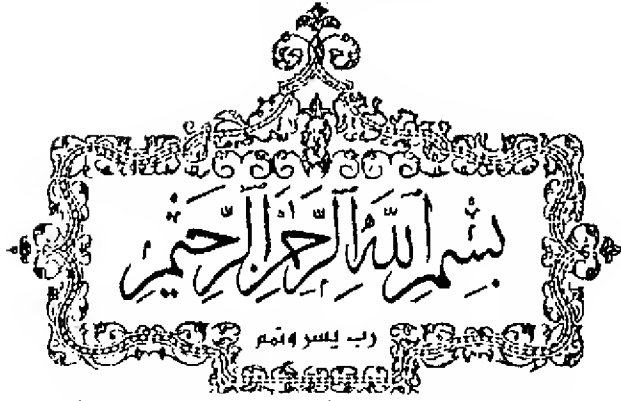 بِسْمِ اللَّهِ الرَّحْمَٰنِ الرَّحِيمِ
رب يسر وتمم